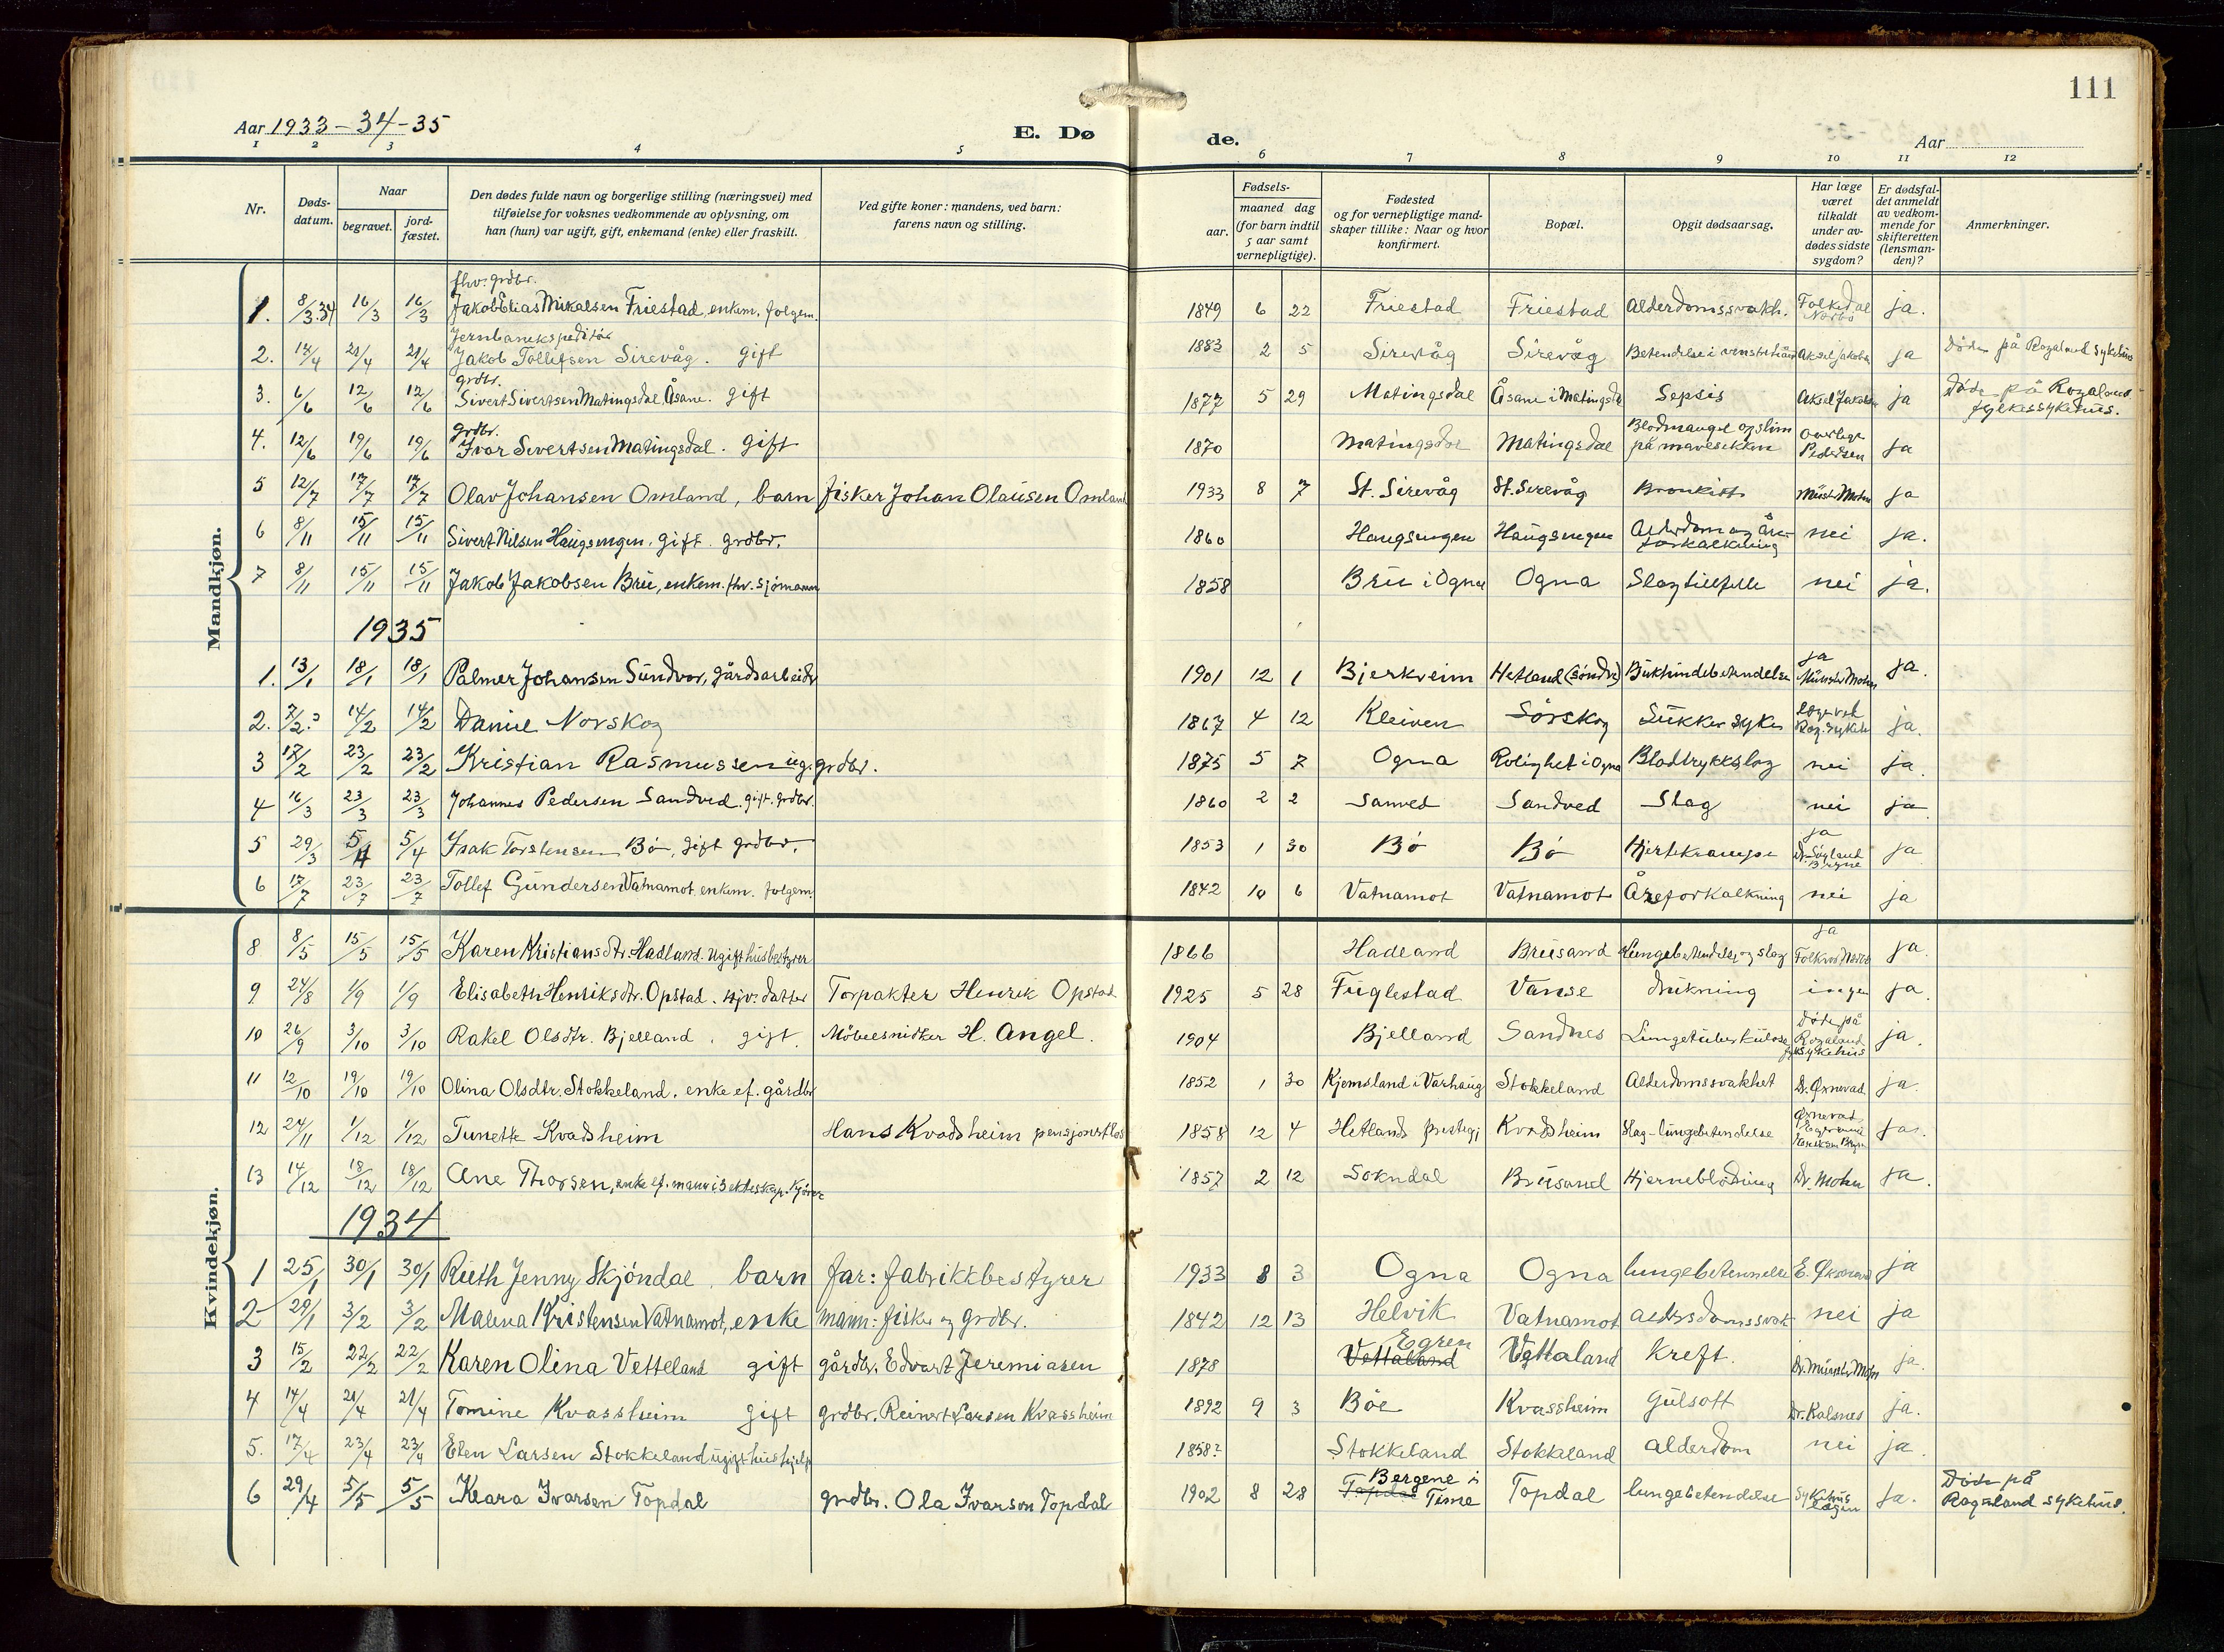 111
Aar 1933-34-35
E. Dø de.
Aar
1 2 3 4 5 6 7 8 9 10 11 12
Nr.
Døds-datum.
Naar
begravet.
jord-fæstet.
Den dødes fulde navn og borgerlige stilling (næringsvei) med
tilføielse for voksnes vedkommende av oplysning, om
han (hun) var ugift, gift, enkemand (enke) eller fraskilt.
Ved gifte koner: mandens, ved barn:
farens navn og stilling.
Fødsels-
aar. maaned dag
(for barn indtil
5 aar samt
vernepligtige).
Fødested
og for vernepligtige mand-
skaper tillike: Naar og hvor
konfirmert.
Bopæl.
Opgit dødsaarsag.
Har læge
været
tilkaldt
under av-
dødes sidste
sygdom?
Er dødsfal-
det anmeldt
av vedkom-
mende for
skifteretten
(lensman-
den)?
Anmerkninger.
Mandkjøn.
fhv. grdbr.
1. 8/3.34 16/3 16/3 Jakob Elias Mikalsen Friestad, enkem. folgem. 1849 6 22 Friestad Friestad Alderdomssvakh. Folkedal Nærbø ja.
Jernbaneekspeditør
2. 14/4 21/4 21/4 Jakob Tollefsen Sirevåg. gift 1883 2 5 Sirevåg Sirevåg Betendelse i venstre Aksel Jakobs ja Døde på Rogaland sykehus
grdbr.
3. 6/6 12/6 12/6 Sivert Sivertsen Matingsdal, Åsane. gift 1877 5 29 Matingsdal Åsane i Matingsdal Sepsis Aksel Jakobsen ja Døde på Rogaland fylkessykehus.
grdbr.
4. 12/6 19/6 19/6 Ivar Sivertsen Matingsdal. gift 1870 Matingsdal Matingsdal Blodmangel og slim på mavesekken Overlege Pedersen ja
5 12/7 17/7 17/7 Olav Johansen Omland, barn fisker Johan Olausen Omland 1933 8 7 St. Sirevåg St. Sirevåg Bronkitt Münster Mohn ja
6 8/11 15/11 15/11 Sivert Nilsen Haugsengen. gift. grdbr. 1860 Haugsengen Haugsengen Alderdom og åreforkalkning nei ja.
7 8/11 15/11 15/11 Jakob Jakobsen Bru, enkem. fhv. sjømann 1858 Bru i Ogna Ogna Slagtilfelle nei ja.
1935
1. 13/1 18/1 18/1 Palmer Johansen Sundvor, gårdsarbeider 1901 12 1 Bjerkreim Hetland (søndre) Bukhindebetendelse ja Münster Mohn ja.
2. 7/2? 14/2 14/2 Daniel Norskog 1867 4 12 Kleiven Sørskog Sukkersyke Rog. sykeh ja.
3 17/2 23/2 23/2 Kristian Rasmussen ug. grdbr. 1875 5 7 Ogna Rolighet i Ogna Blodtrykkslag nei ja.
4 16/3 23/3 23/3 Johannes Pedersen Sandved. gift. grdbr. 1860 2 2 Sanved Sandved Slag nei ja
5 29/3 5/4 5/4 Isak Torstensen Bø, gift grdbr. 1853 1 30 Bø Bø Hjertekrampe ja Dr. Bryne ja
6 17/7 23/7 23/7 Tollef Gundersen Vatnamot. enkem. folgem. 1842 10 6 Vatnamot Vatnamot Åreforkalkning nei ja
Kvindekjøn.
8 8/5 15/5 15/5 Karen Kristiansdtr. Hadland. ugift husbestyrer 1866 Hadland Brusand Lungebetendelse og slag ja ja.
9 24/8 1/9 1/9 Elisabeth Henriksdtr. Opstad. hjv. datter Torpakter Henrik Opstad 1925 5 28 Fuglestad Vanse drukning ingen ja.
10 26/9 3/10 3/10 Rakel Olsdtr. Bjelland. gift. Møbelsnidker H. Angel. 1904 Bjelland Sandnes Lungetuberkulose Døde på Rogaland fylkessykehus ja.
11 12/10 19/10 19/10 Olina Olsdtr. Stokkeland. enke ef. gårdbr 1852 1 30 Kjemsland i Varhaug Stokkeland Alderdomssvakhet Dr. Øxnevad ja.
12 24/11 1/12 1/12 Tunette Kvadsheim Hans Kvadsheim pensjonert los 1858 12 4 Hetlands prestegj Kvadsheim Slag-lungebetendelse Øxnevad ja.
13 14/12 18/12 18/12 Ane Thorsen, enke ef. mann i 3 ekteskap. 1857 2 12 Sokndal Brusand Hjerneblødning Dr. Mohn ja.
1934
1 25/1 30/1 30/1 Ruth Jenny Skjøndal. barn far: fabrikkbestyrer 1933 8 3 Ogna Ogna lungebetennelse E. Øxnevad ja
2 29/1 3/2 3/2 Malena Kristensen Vatnamot, enke mann: fisker og grdbr. 1842 12 13 Helvik Vatnamot alderdomssvak nei ja
3 15/2 22/2 22/2 Karen Olina Vetteland gift gårdbr. Edvart Jeremiasen 1878 Vettaland Egren Vettaland Kreft. Dr. Münster Mohn ja.
4 14/4 21/4 21/4 Tomine Kvassheim gift grdbr. Reinert Larsen Kvassheim 1892 9 3 Bøe Kvassheim Gulsott Dr. Kalsnes ja.
5. 17/4 23/4 23/4 Elen Larsen Stokkeland ugift hushjelp 1858? Stokkeland Stokkeland alderdom nei ja.
6 29/4 5/5 5/5 Klara Ivarsen Topdal grdbr. Ola Ivarson Topdal 1902 8 28 Topdal Bergene i Time Topdal lungebetendelse Sykehus lægen ja. Døde på Rogaland sykehus.